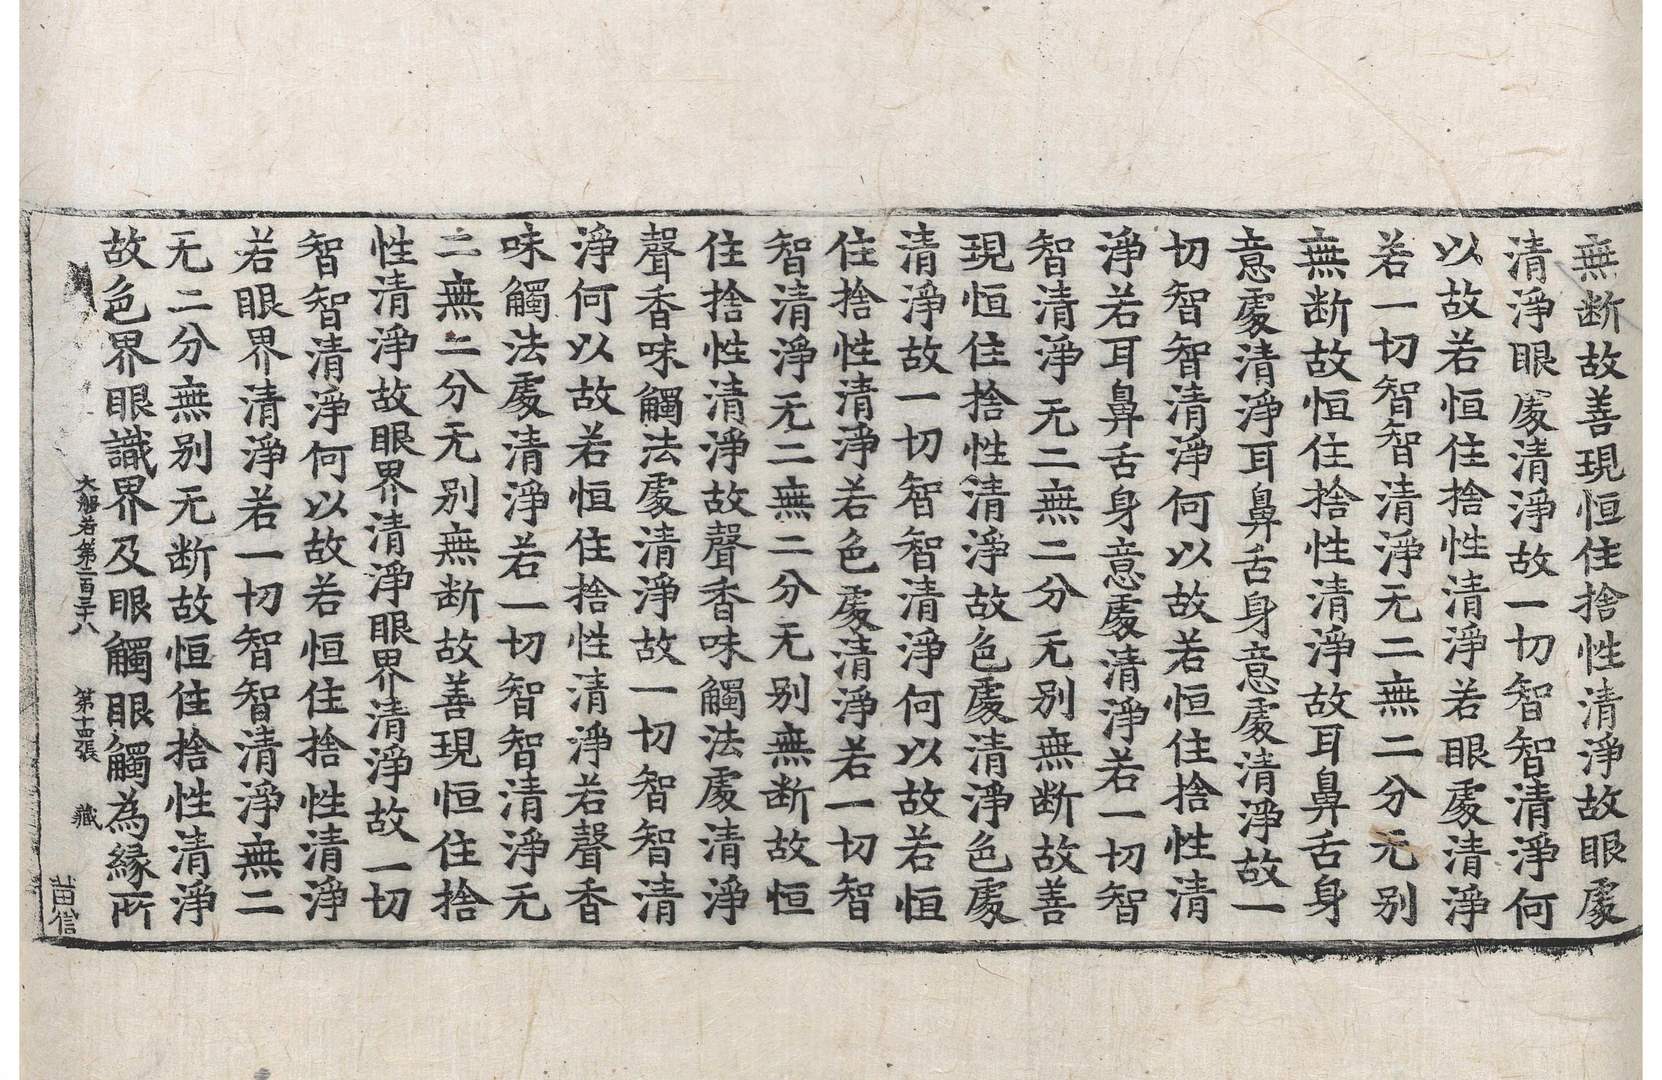 無断故善現恒住捨性清淨故眼處
清淨眼處清淨故一切智智清淨何
以故若恒住捨性清淨若眼處清淨
若一切智智清淨无二無二分无别
無断故恒住捨性清淨故耳鼻舌身
意處清淨耳鼻舌身意處清淨故一
切智智清淨何以故若恒住捨性清
淨若耳鼻舌身意處清淨若一切智
智清淨无二無二分无别無断故善
現恒住捨性清淨故色處清淨色處
清淨故一切智智清淨何以故若恒
住捨性清淨若色處清淨若一切智
智清淨无二無二分无别無断故恒
住捨性清淨故聲香味觸法處清淨
聲香味觸法處清淨故一切智智清
淨何以故若恒住捨性清淨若聲香
味觸法處清淨若一切智智清淨无
二無二分无别無断故善現恒住捨
性清淨故眼界清淨眼界清淨故一切
智智清淨何以故若恒住捨性清淨
若眼界清淨若一切智智清淨無二
无二分無别无断故恒住捨性清淨
故色界眼識界及眼觸眼觸為緣所
大般若第二百三十八 第十四張 藏
苗信